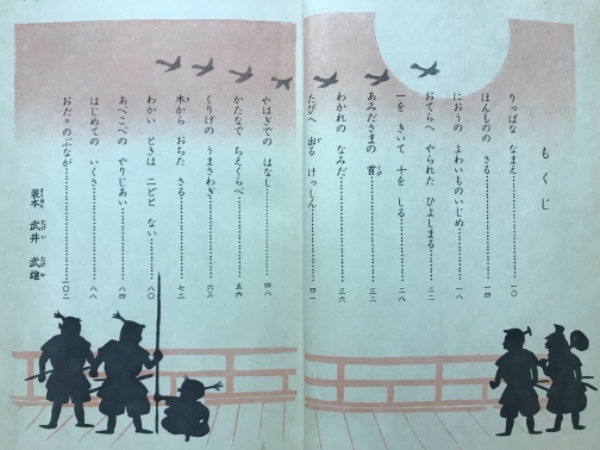 もくじ
りっぱな なまえ……………一〇
ほんものの さる……………一四
におうの よわいものいじめ……………一八
おてらへ やられた ひよしまる……………二二
一を きいて 十を しる……………二八
あみださまの 首……………三二
わかれの なみだ……………三六
たびへ 出る けっしん……………四一
やはぎでの はなし……………四八
かたなで ちえくらべ……………五六
くりげの うまさわぎ……………六三
木から おちた さる……………七二
わかい ときは 二どと ない……………八〇
あべこべの やりじあい……………八四
はじめての いくさ……………八八
おだ＝のぶなが……………一〇二
装本 武井 武雄